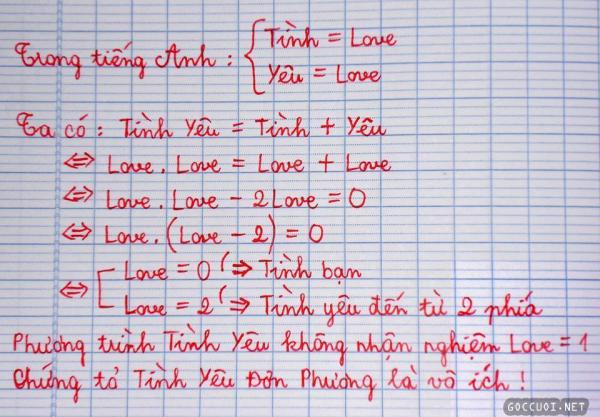 Trong tiếng Anh : { Tình = Love
Yêu = Love
Ta có : Tình Yêu = Tình + Yêu
⇔ Love . Love = Love + Love
⇔ Love . Love - 2 Love = 0
⇔ Love . (Love - 2) = 0
⇔ [ Love = 0 (⇒ Tình bạn
Love = 2 (⇒ Tình yêu đến từ 2 phía
Phương trình Tình Yêu không nhận nghiệm Love = 1
Chứng tỏ Tình Yêu Đơn Phương là vô ích !
GOCCUOI.NET